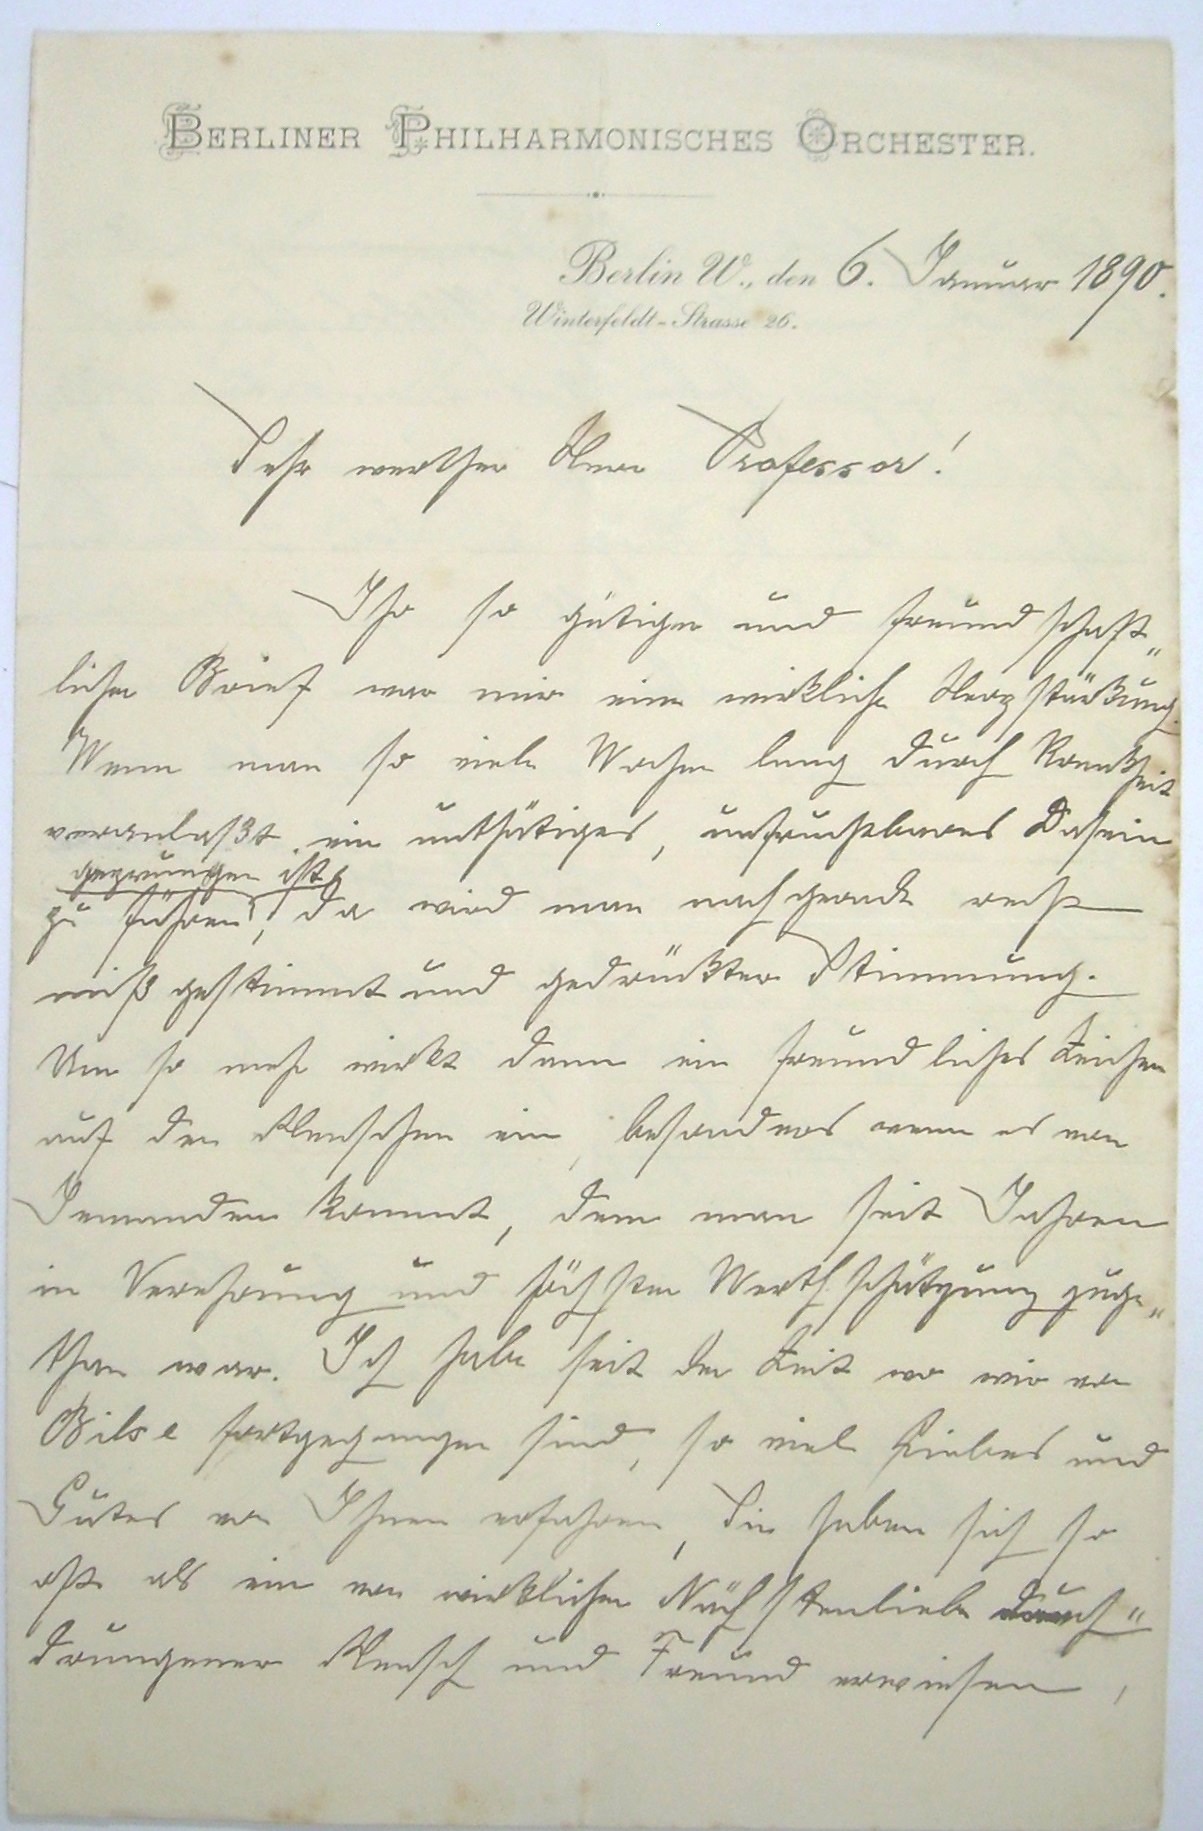 BERLINER PHILHARMONISCHES ORCHESTER.
Berlin W., den 6. Januar 1890.
Winterfeldt-Strasse 26.
Sehr werther Herr Professor!
Ihr so gütiger und freundschaft„
licher Brief war mir eine wirkliche Herzstärkung.
Wenn man so viele Wochen lang durch Krankheit
veranlaßt, ein unthätiges, unfruchtbares Dasein
gezwungen ist
zu führen, da wird man nachgerade recht
mißgestimmt und gedrückter Stimmung.
Um so mehr wirkt dann ein freundliches Zeichen
auf den Menschen ein, besonders wenn es von
Jemandem kommt, dem man seit Jahren
in Verehrung und höchster Werthschätzung zuge„
than war. Ich habe seit der Zeit wo wir von
Bilse fortgegangen sind, so viel Liebes und
Gutes von Ihnen erfahren, Sie haben sich so
oft als ein von wirklicher Nächstenliebe durch„
drungener Mensch und Freund erwiesen,